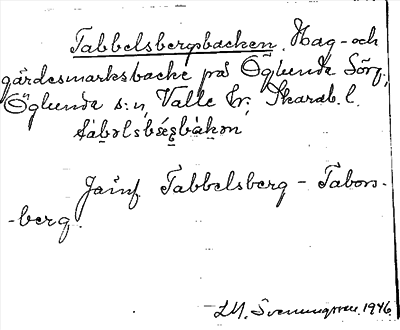 Tabbelsbergsbacken. Hag- och
gärdesmarksbacke på Öglunda Sörg.,
Öglunda s:n, Valle hr, Skarab. l.
Jämf Tabbelsberg - Tabors-
-berg.
Svenungsson 1946